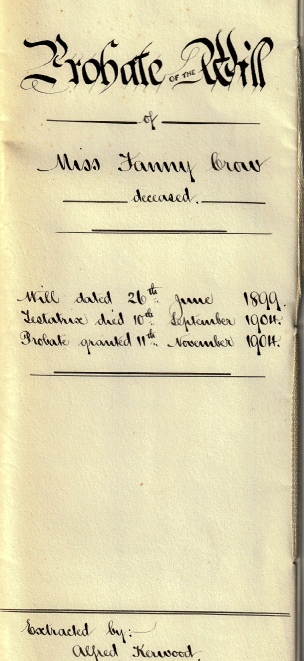 Probate OF THE Will
of
Miss Fanny Crow
deceased.
Will dated 26th June 1899.
Testatrix died 10th September 1904.
Probate granted 11th November 1904.
Extracted by:-
Alfred Kerwood